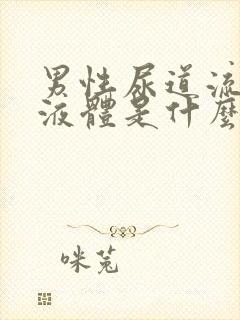 男性尿道流
液體是什麼
咪兔